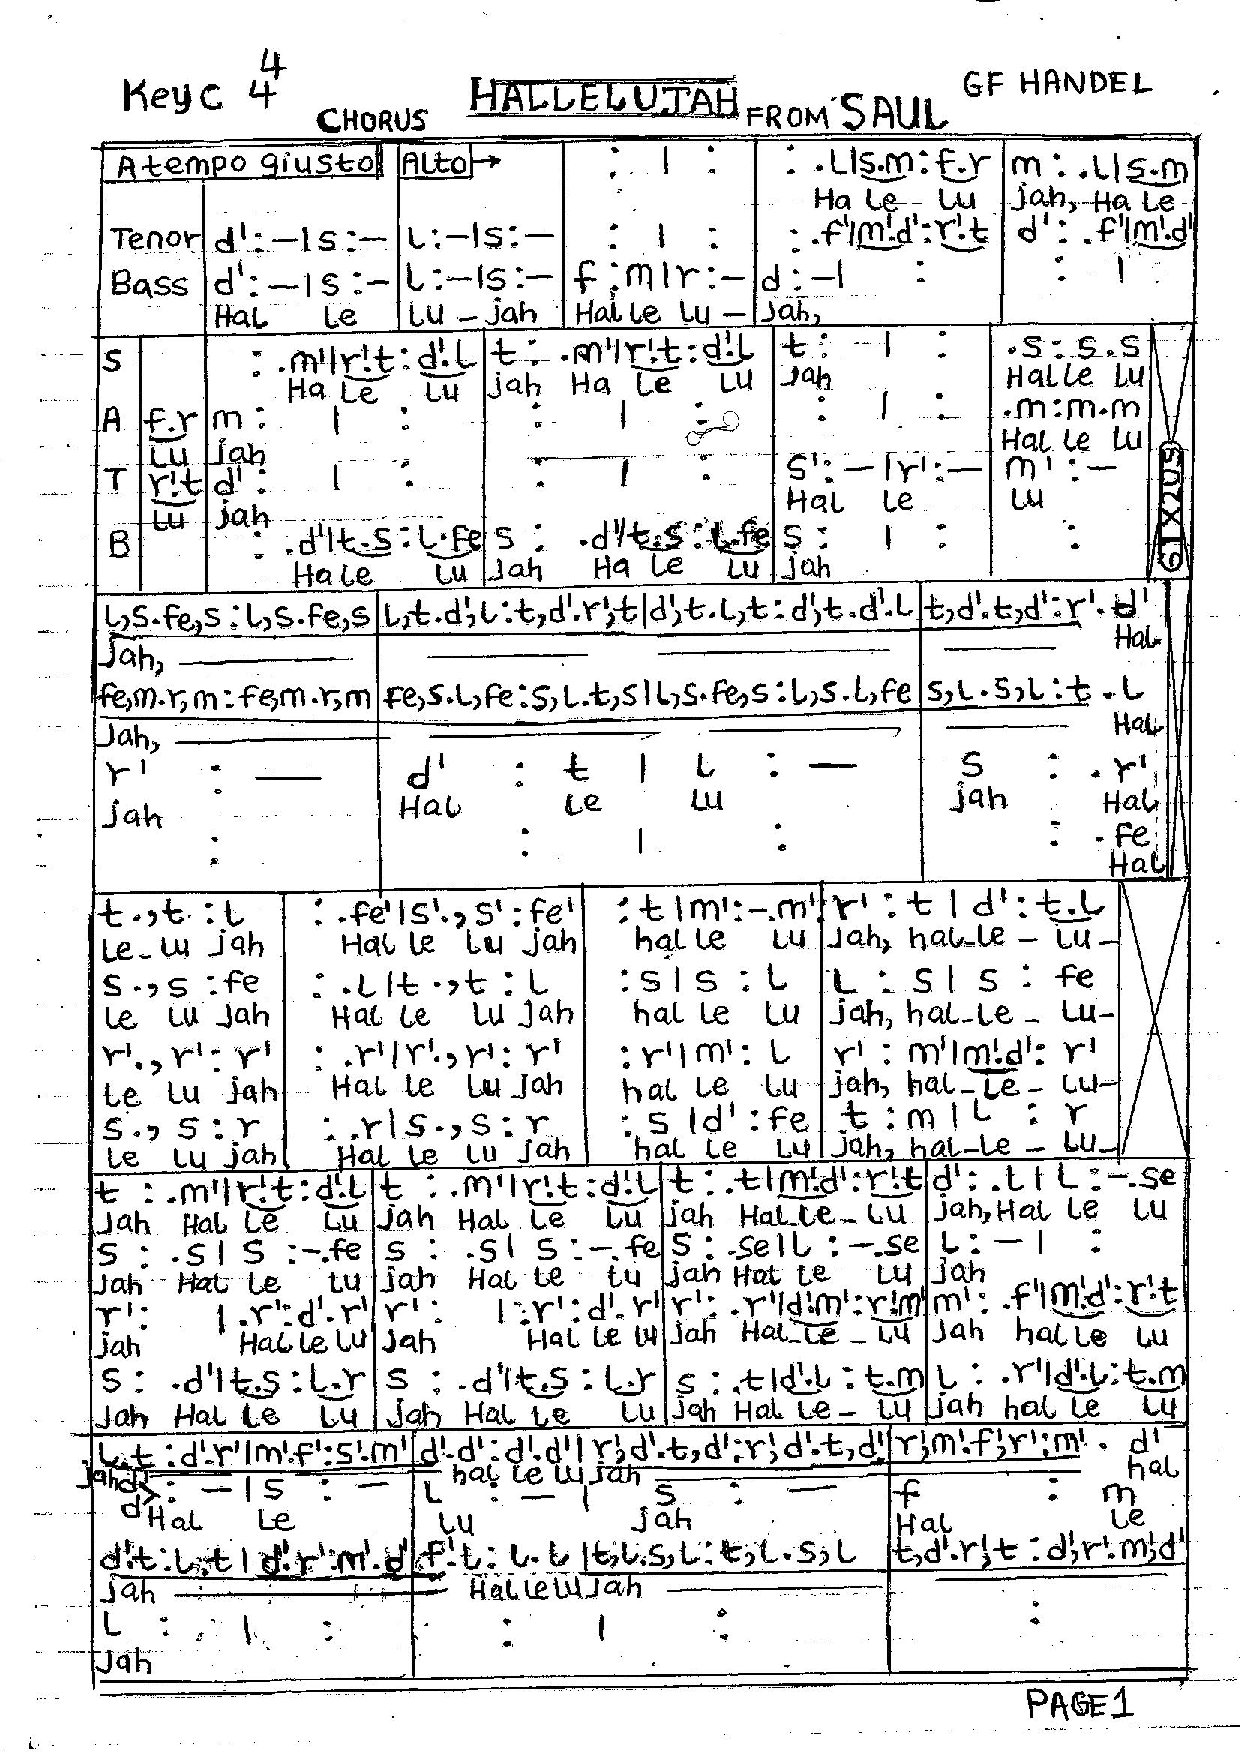 Key C 4/4
CHORUS HALLELUJAH FROM SAUL GF HANDEL
A tempo giusto Alto→ : | : : .L|s.m:f.r m: .L|s.m
Ha Le Lu jah, Ha Le
Tenor d':–|s:– L:–|s:– : | : : .f'|m'.d':r'.t d': .f'|m'.d'
Bass d':–|s:– L:–|s:– f:m|r:– d:–| : : |
Hal Le Lu – jah Hal Le Lu – Jah,
S : .m'|r'.t:d'.L t: .m'|r'.t:d'.L t: | : .s:s.s
Ha Le Lu jah Ha Le Lu Jah Hal Le Lu
A f.r m: | : : | : : | : .m:m.m
Lu jah Hal Le Lu
T r'.t d': | : : | : s':–|r':– m':–
Lu jah Hal Le Lu
B : .d'|t.s:L.fe s: .d'|t.s:L.fe s: | : :
Ha Le Lu Jah Ha Le Lu jah
L,s.fe,s:L,s.fe,s L,t.d',L:t,d'.r',t|d',t.L,t:d',t.d'.L t,d'.t,d':r'.d'
Jah, Hal
fe,m.r,m:fe,m.r,m fe,s.L,fe:s,L.t,s|L,s.fe,s:L,s.L,fe s,L.s,L:t.L
Jah, Hal
r' : — d' : t | L : — s : .r'
jah Hal Le Lu jah Hal
: : | : : .fe
Hal
t.,t:L : .fe'|s'.,s':fe' :t|m':–.m' r':t|d':t.L
Le Lu jah Hal Le Lu jah hal le Lu Jah, hal-le – Lu –
s.,s:fe : .L|t.,t:L :s|s:L L:s|s:fe
Le Lu Jah Hal Le Lu Jah hal Le Lu jah, hal-Le – Lu–
r'.,r':r' : .r'|r'.,r':r' :r'|m':L r':m'|m'.d':r'
Le Lu jah Hal Le Lu Jah hal le Lu jah, hal-Le – Lu–
s.,s:r : .r|s.,s:r :s|d':fe t:m|L:r
Le Lu jah Hal Le Lu Jah hal Le Lu jah, hal-le – Lu–
t: .m'|r'.t:d'.L t: .m'|r'.t:d'.L t: .t|m'.d':r'.t d': .L|L:–.se
Jah Hal Le Lu Jah Hal Le Lu jah Hal-Le – Lu jah, Hal Le Lu
s: .s|s:–.fe s: .s|s:–.fe s: .se|L:–.se L:–| :
Jah Hal Le Lu jah Hal Le Lu jah Hal Le Lu jah
r': |.r':d'.r' r': |:r':d'.r' r': .r'|d'.m':r'.m' m': .f'|m'.d':r'.t
jah Hal Le Lu Jah Hal Le Lu Jah Hal-Le – Lu Jah hal le Lu
s: .d'|t.s:L.r s: .d'|t.s:L.r s: .t|d'.L:t.m L: .r'|d'.L:t.m
Jah Hal Le Lu jah Hal Le Lu Jah Hal Le – Lu jah hal le Lu
L.t:d'.r'|m'.f':s'.m' d'.d':d'.d'|r',d'.t,d':r',d'.t,d' r',m'.f',r':m'.d'
Jah hal le lu jah hal
d' :–|s:– L:–|s:– f : m
Hal Le Lu jah Hal Le
d'.t:L.t|d'.r':m'.d' f'.L:L.L|t,L.s,L:t,L.s,L t,d'.r',t:d',r'.m',d'
jah Hal Le lu Jah
L : | : : | : :
Jah
PAGE 1